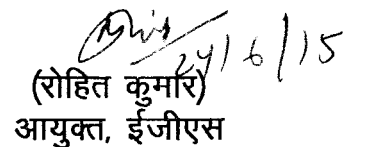 24/6/15
(रोहित कुमार)
आयुक्त, ईजीएस